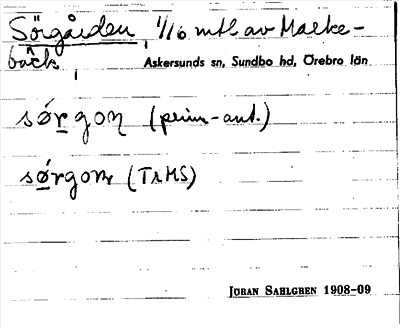 Sörgården, 1/16 mtl av Marke-
bäck,
Askersunds sn, Sundbo hd, Örebro län
sørgoɳ (prim-ant.)
sørgoɳ (TrMS)
JÖRAN SAHLGREN 1908-09